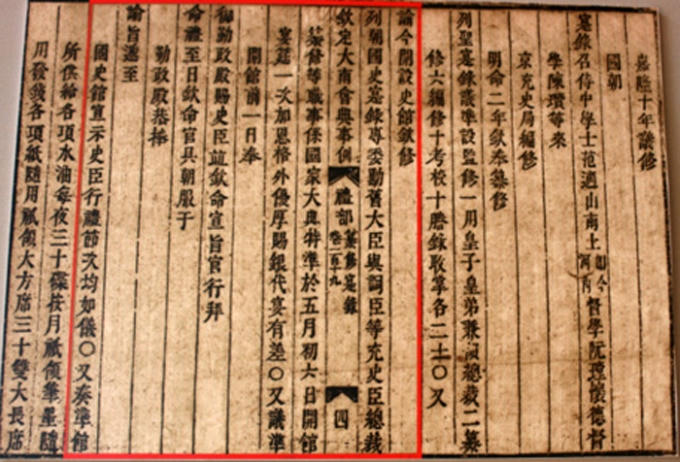 嘉隆十年議修
國朝
寔錄召侍中學士范適山南上即今河內督學阮瑝懷德督
學陳瓚等來
京充史局編修
明命二年欽奉纂修
列聖寔錄議準設監修一用皇子皇弟兼領總裁二纂
修六編修十考校十謄錄收掌各二十〇又
諭令開設史館欽修
列朝國史寔錄專委勳舊大臣與詞臣等充史臣總裁
欽定大南會典事例 禮部 纂修寔錄 卷二百十九 四
纂修等職事係國家大典特準於五月初六日開館
宴筵一次加恩格外優厚賜銀代宴有差〇又議準
開館前一日奉
御勤政殿賜史臣筵欽命宣旨官行拜
命禮至日欽命官具朝服于
勤政殿恭捧
諭旨遞至
國史館宣示史臣行禮節次均如儀〇又奏準館
所供給各項水油每夜三十碟按月祗領筆墨隨
用發錢各項紙隨用祗領大方席三十雙大長席